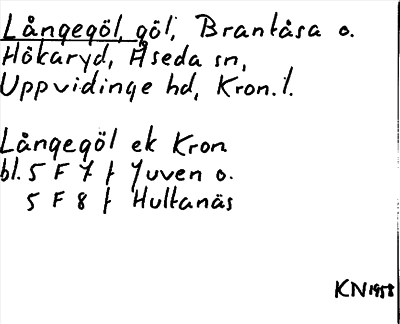 Långegöl, göl, Brantåsa o.
Hökaryd, Åseda sn,
Uppvidinge hd, Kron. l.
Långegöl ek Kron
bl. 5 F 7 f Yuven o.
5 F 8 f Hultanäs
KN 1958